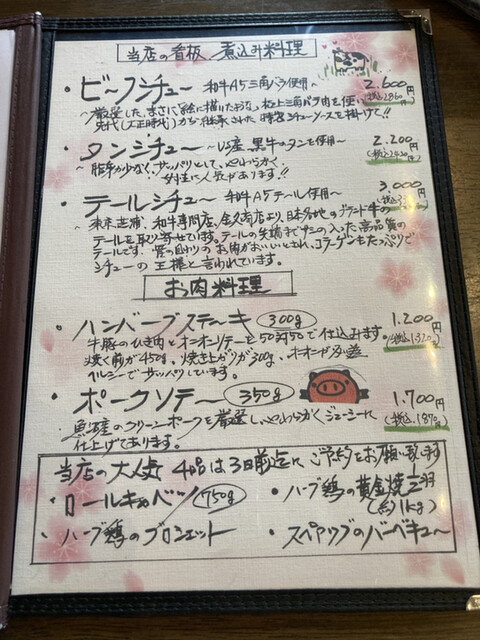 当店の看板、煮込み料理
・ビーフシチュー 和牛A5三角バラ使用〜 2.600円
(税込2860円)
〜厳選した、まさに絵に描いたような、極上三角バラ肉を使い
先代(大正時代)から継承された特製シチューソースを掛けて!!
・タンシチュー 〜US産 黒牛タンを使用〜 2.200円
〜脂身が少なく、サッパリとして、やわらかく
女性に人気があります!!
・テールシチュー 和牛A5テール使用〜 3.000円
東京芝浦、和牛専門店、より、日本各地のブランド牛の
テールを取り寄せています。テールの先端までサシの入った高品質の
テールです。骨の周りのお肉がおいしいといわれ、コラーゲンもたっぷりで
シチューの王様と言われています。
お肉料理
・ハンバーグステーキ 300g 1.200円
(税込1320円)
牛豚のひき肉とオニオンソテーを50対50で仕込みます。
焼く前が450g、焼き上がりが300g、オニオンが多い為
ヘルシーでサッパリしています。
・ポークソテー 350g 1.700円
(税込1870円)
産のクリーンポークを厳選し、やわらかくジューシーに
仕上げてあります。
当店の大人気 4品は3日前迄にご予約をお願い致します
・ロールキャベツ 750g ・ハーブ鶏の黄金焼 1羽
(約1kg)
・ハーブ鶏のブロシェット ・スペアリブのバーベキュー